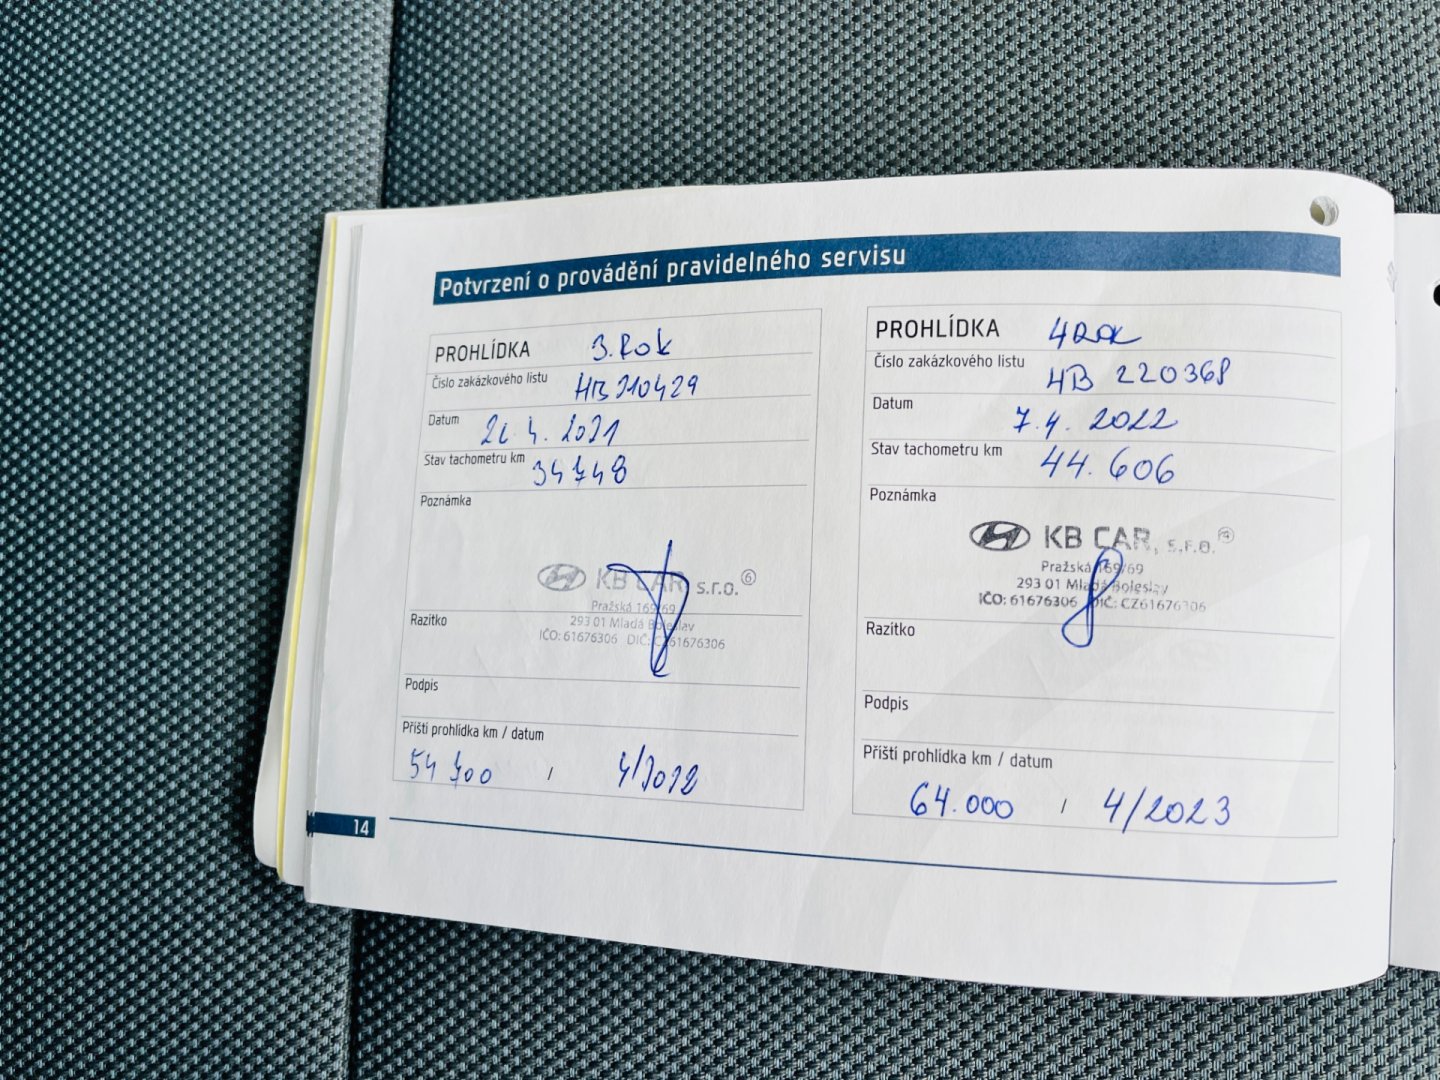 Potvrzení o provádění pravidelného servisu
PROHLÍDKA 3. Rok
Číslo zakázkového listu HB210429
Datum 4. 2021
Stav tachometru km 34748
Poznámka
KB CAR, s.r.o. 6
Pražská 169/69
293 01 Mladá Boleslav
Razítko
IČO: 61676306 DIČ: CZ61676306
Podpis
Příští prohlídka km / datum
54 700 / 4/2022
14
PROHLÍDKA 4 Rok
Číslo zakázkového listu HB 220368
Datum 7. 4. 2022
Stav tachometru km 44.606
Poznámka
KB CAR, s.r.o.
Pražská 169/69
293 01 Mladá Boleslav
IČO: 61676306 DIČ: CZ61676306
Razítko
Podpis
Příští prohlídka km / datum
64.000 / 4/2023